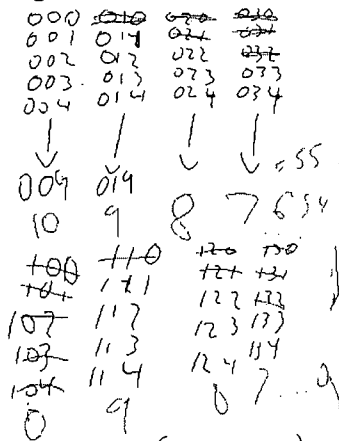 000 010 020 030
001 011 021 031
002 012 022 032
003 013 023 033
004 014 024 034
009 019
10 9 8 7 6
100 110 120 130
101 111 121 131
102 112 122 132
103 113 123 133
104 114 124 134
0 9 8 7...